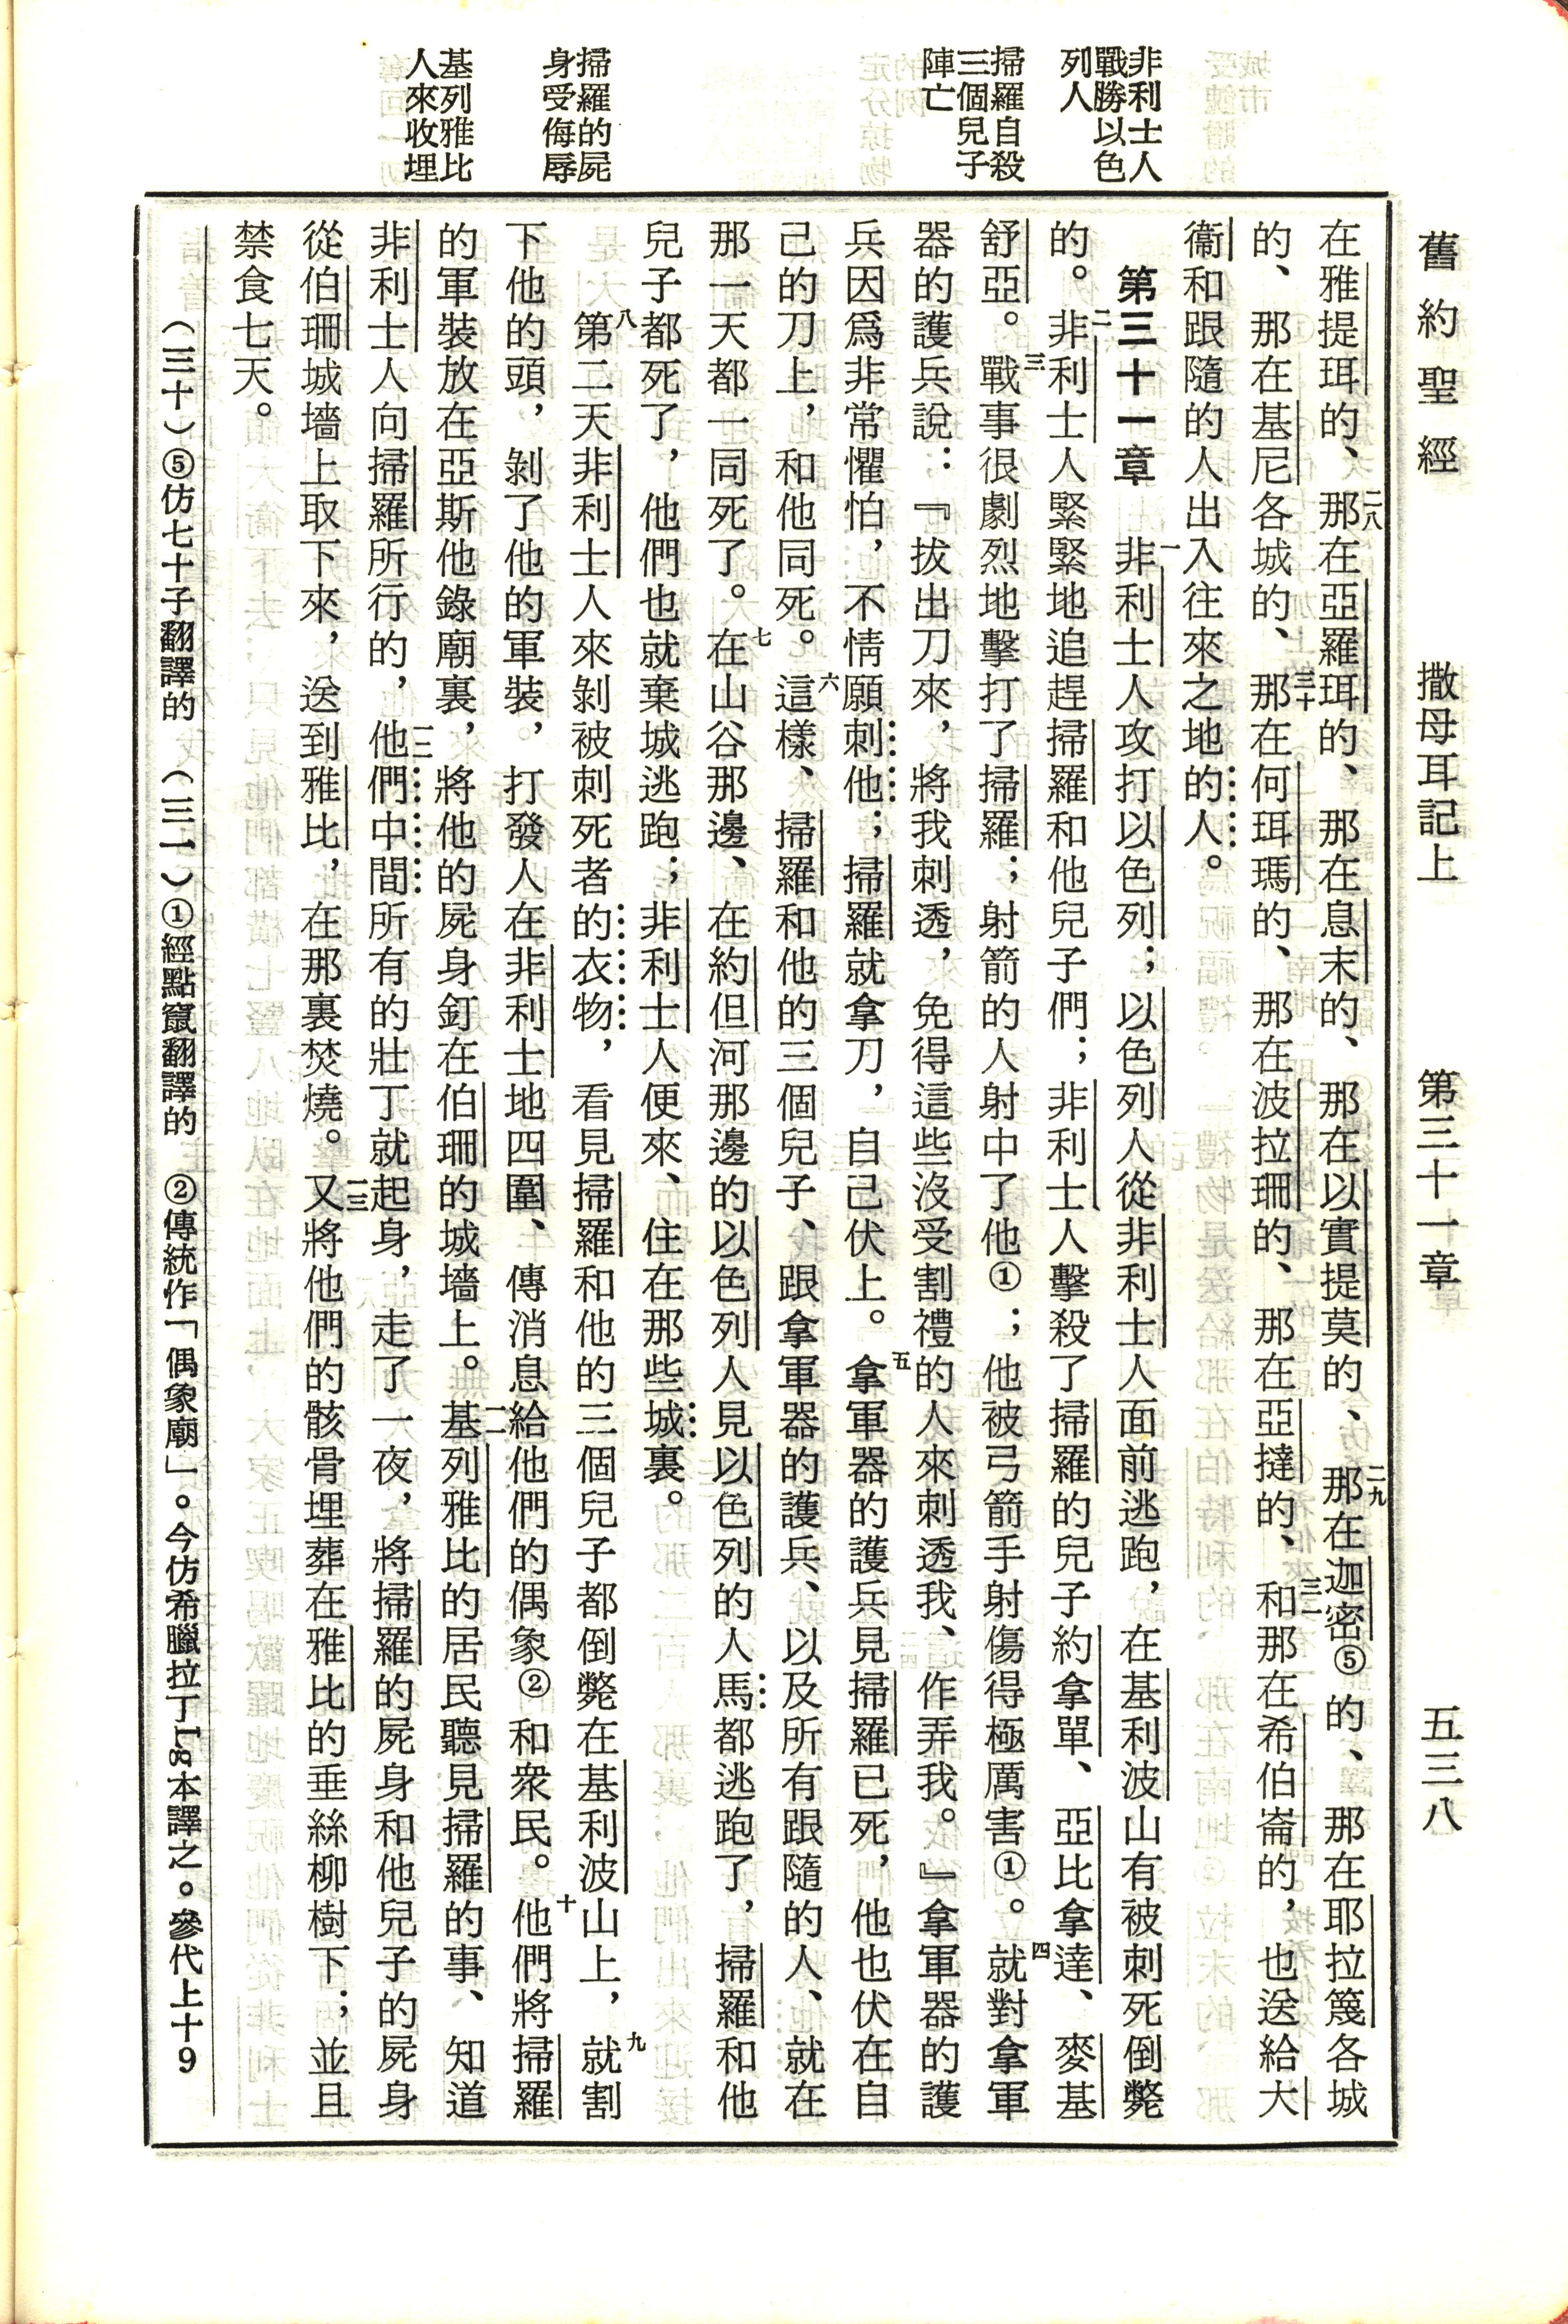 舊約聖經　撒母耳記上　第三十一章　五三八
非利士人
戰勝以色
列人
掃羅自殺
三個兒子
陣亡
掃羅的屍
身受侮辱
基列雅比
人來收埋
在雅提珥的、二八那在亞羅珥的、那在息末的、那在以實提莫的、二九那在迦密⑤的、那在耶拉篾各城
的、那在基尼各城的、三十那在何珥瑪的、那在波拉珊的、那在亞撻的、三一和那在希伯崙的，也送給大
衞和跟隨的人出入往來之地的人。
第三十一章　一非利士人攻打以色列；以色列人從非利士人面前逃跑，在基利波山有被刺死倒斃
的。二非利士人緊緊地追趕掃羅和他兒子們；非利士人擊殺了掃羅的兒子約拿單、亞比拿達、麥基
舒亞。三戰事很劇烈地擊打了掃羅；射箭的人射中了他①；他被弓箭手射傷得極厲害①。四就對拿軍
器的護兵說：『拔出刀來，將我刺透，免得這些沒受割禮的人來刺透我、作弄我。』拿軍器的護
兵因爲非常懼怕，不情願刺他；掃羅就拿刀，自己伏上。五拿軍器的護兵見掃羅已死，他也伏在自
己的刀上，和他同死。六這樣、掃羅和他的三個兒子、跟拿軍器的護兵、以及所有跟隨的人、就在
那一天都一同死了。七在山谷那邊、在約但河那邊的以色列人見以色列的人馬都逃跑了，掃羅和他
兒子都死了，他們也就棄城逃跑；非利士人便來、住在那些城裏。
八第二天非利士人來剝被刺死者的衣物，看見掃羅和他的三個兒子都倒斃在基利波山上，九就割
下他的頭，剝了他的軍裝，打發人在非利士地四圍、傳消息給他們的偶象②和衆民。十他們將掃羅
的軍裝放在亞斯他錄廟裏，將他的屍身釘在伯珊的城墻上。一一基列雅比的居民聽見掃羅的事、知道
非利士人向掃羅所行的，一二他們中間所有的壯丁就起身，走了一夜，將掃羅的屍身和他兒子的屍身
從伯珊城墻上取下來，送到雅比，在那裏焚燒。一三又將他們的骸骨埋葬在雅比的垂絲柳樹下；並且
禁食七天。
（三十）⑤仿七十子翻譯的　（三一）①經點竄翻譯的　②傳統作「偶象廟」。今仿希臘拉丁Lg本譯之。參代上十9